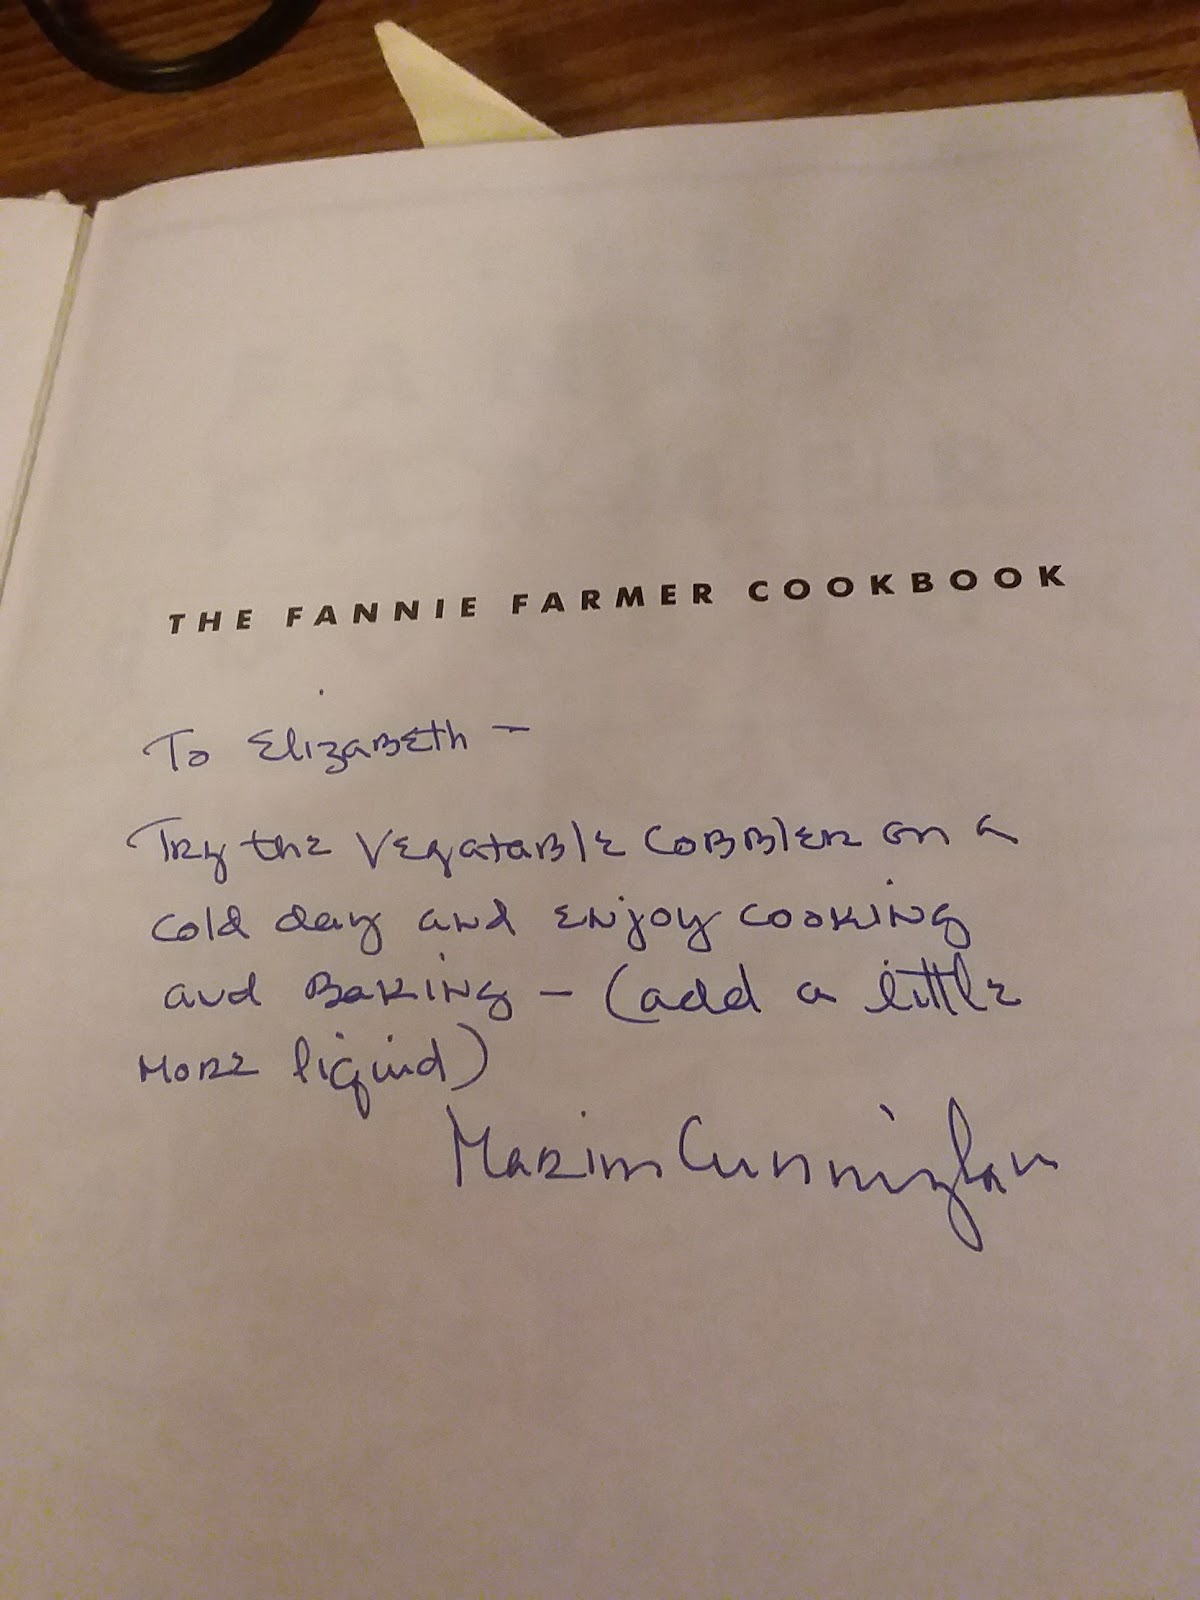 THE FANNIE FARMER COOKBOOK
To Elizabeth —
Try the Vegatable Cobbler on a
cold day and enjoy cooking
and Baking — (add a little
more liquid)
Marion Cunningham